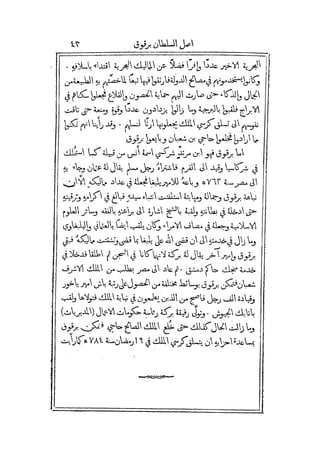 اصل السلطان برقوق ٤٣
البحرية الاخير عددًا وافرًا فضلًا عن المماليك البحرية اقتداء باسلافهِ .
وكانوا يستخدمونهم في مصالح الدولة فارتقوا فيها تبعًا لما خصتهم بهِ الطبيعة من
الجمال والذكاء حتى صارت اليهم حماية الحصون والقلاع فجعلوا سكناهم في
الابراج فلقبوا بالبرجية وما زالوا يزدادون عددًا وقوة ومنعة حتى تاقت
نفوسهم الى تسلق كرسي الملك يجعلونها ارثًا لنسلهم . وقد رأينا انهم تمكنوا
مما ارادوا فخلعوا حاجي بن شعبان وبايعوا برقوق
اما برقوق فهو ابن مرتد شركسي اسمهُ أنس من قبيلة كسا استُملك
في شركاسيا وقيد الى القرم فاشتراهُ رجل مسلم يقال لهُ عثمان وجاء بهِ
الى مصر سنة ٧٦٣ ﻫ وباعهُ للامير يلبغا فجعلهُ في عداد مماليكهِ الا ان
نباهة برقوق وجمالهُ ومهابتهُ استلفتت انتباه سيدهِ فبالغ في اكرامهِ وترقيتهِ
حتى ادخلهُ في بطانتهِ ولقبهُ بالشيخ اشارة الى براعتهِ بالفقه وسائر العلوم
الاسلامية وجعلهُ في مصاف الامراء وكان يلقب ايضًا بالعثماني واليلبغاوي
وما زال في خدمتهِ الى ان قضى الله على يلبغا بما قضى وتشتتت مماليكهُ فبقي
برقوق وامير آخر يقال لهُ بركة لانهما كانا في السجن ثم اطلقا فدخلا في
خدمة منجك حاكم دمشق . ثم عاد الى مصر بطلب من الملك الاشرف
شعبان فتمكن برقوق بوسائط مختلفة من الحصول على رتبة باش امير ياخور
وقيادة الف رجل فاصبح من الذين يطمعون في نيابة الملك فتولاها ولقب
باتابك الجيوش . وتولى رفيقهُ بركة رئاسة حكومات الاعمال (المديريات)
وما زالت الحال كذلك حتى خلع الملك الصالح حاجي فتمكن برقوق
بمساعدة احزابهِ ان يتسلق كرسي الملك في ١٩ رمضان سنة ٧٨٤ ﻫ كما رأيت